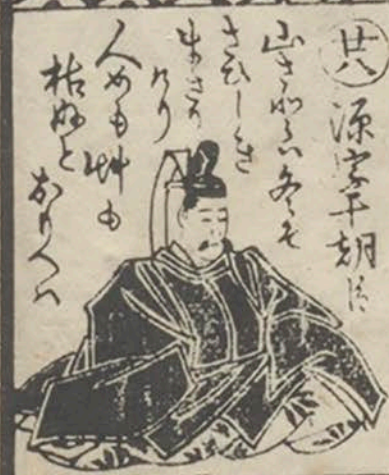 廿八
源宗于朝臣
山さとハ冬そ
さひしさ
まさり
けり
人めも艸も
枯ぬと
おもへハ